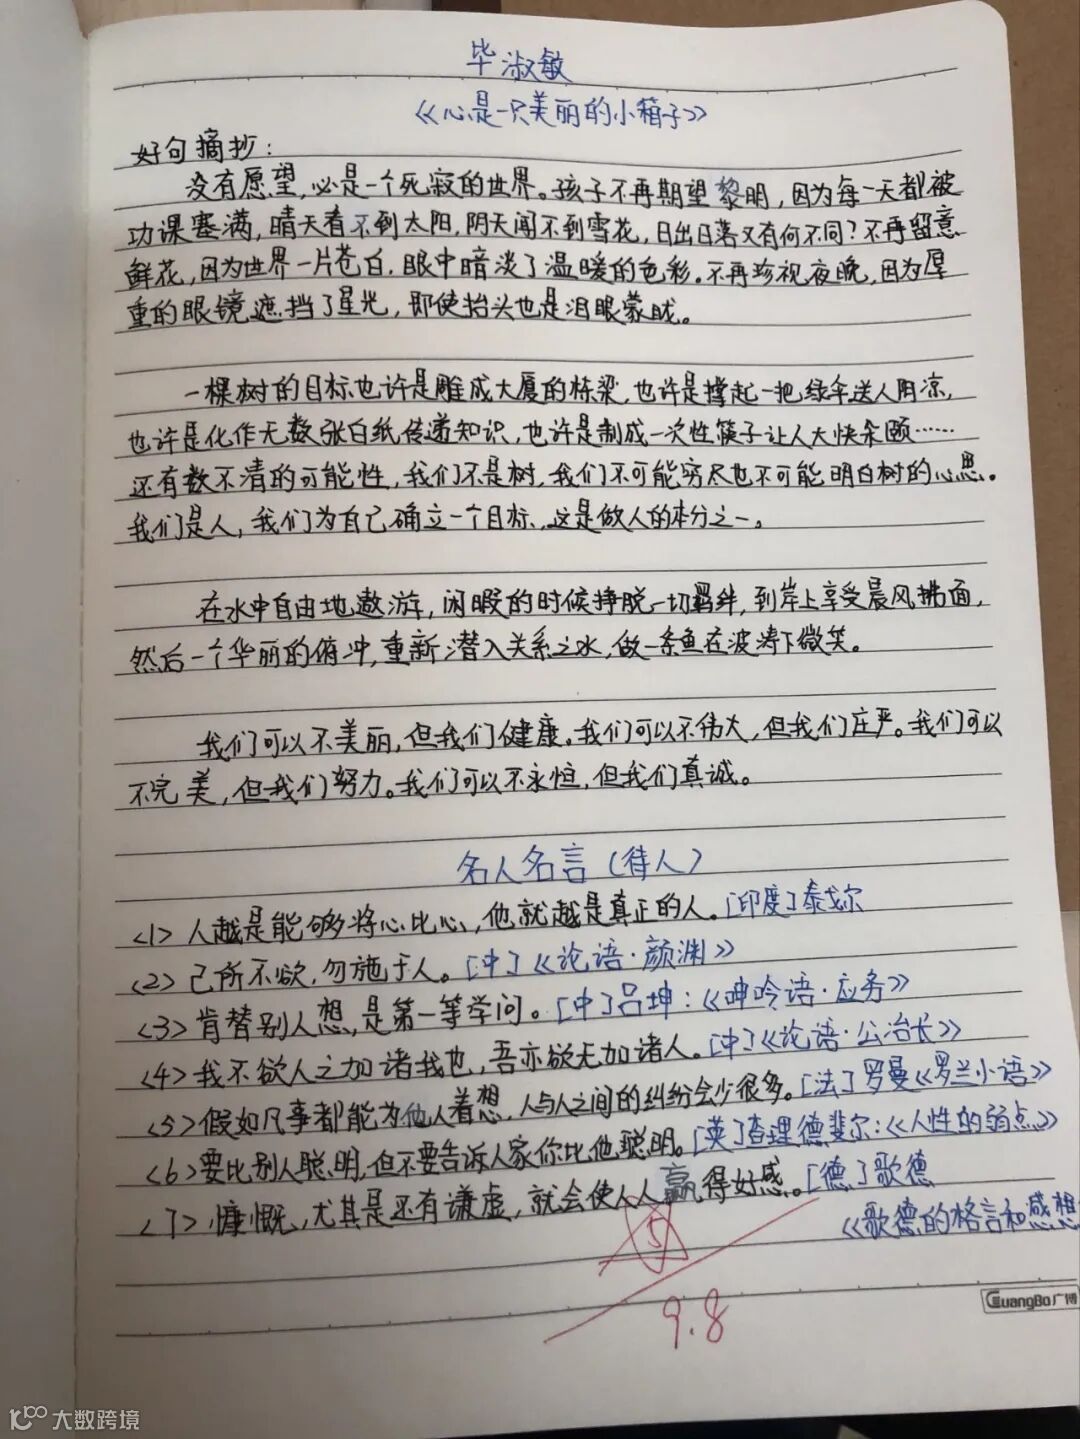 毕淑敏
《心是一只美丽的小箱子》
好句摘抄:
没有愿望,必是一个死寂的世界。孩子不再期望黎明,因为每一天都被
功课塞满,晴天看不到太阳,阴天闻不到雪花,日出日落又有何不同?不再留意
鲜花,因为世界一片苍白,眼中暗淡了温暖的色彩。不再珍视夜晚,因为厚
重的眼镜遮挡了星光,即使抬头也是泪眼蒙眬。
一棵树的目标也许是雕成大厦的栋梁,也许是撑起一把绿伞送人阴凉,
也许是化作无数张白纸传递知识,也许是制成一次性筷子让人大快朵颐……
还有数不清的可能性,我们不是树,我们不可能穷尽也不可能明白树的心思。
我们是人,我们为自己确立一个目标,这是做人的本分之一。
在水中自由地遨游,闲暇的时候挣脱一切羁绊,到岸上享受晨风拂面,
然后一个华丽的俯冲,重新潜入关系之水,做一条鱼在波涛下微笑。
我们可以不美丽,但我们健康。我们可以不伟大,但我们庄严。我们可以
不完美,但我们努力。我们可以不永恒,但我们真诚。
名人名言(待人)
<1>人越是能够将心比心,他就越是真正的人。[印度]泰戈尔
<2>己所不欲,勿施于人。[中]《论语·颜渊》
<3>肯替别人想,是第一等学问。[中]吕坤:《呻吟语·应务》
<4>我不欲人之加诸我也,吾亦欲无加诸人。[中]《论语·公冶长》
<5>假如凡事都能为他人着想,人与人之间的纠纷会少很多。[法]罗曼《罗兰小语》
<6>要比别人聪明,但不要告诉人家你比他聪明。[英]查理德斐尔:《人性的弱点》
<7>慷慨,尤其是还有谦虚,就会使人人赢得好感。[德]歌德
《歌德的格言和感想
5
9.8
GuangBo广博
大数跨境